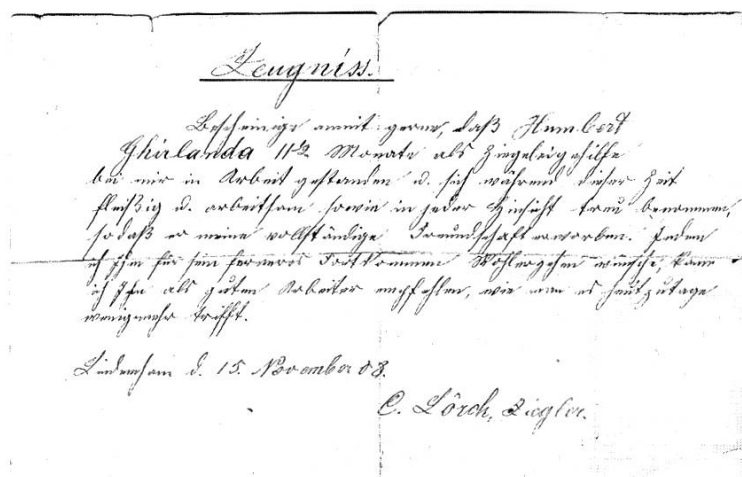 Zeugniss.
Bescheinige anmit gerne, daß Humbert
Ghirlanda 11½ Monate als Ziegeleigehilfe
bei mir in Arbeit gestanden u. sich während dieser Zeit
fleißig u. arbeitsam sowie in jeder Hinsicht treu benommen,
sodaß er meine vollständige Freundschaft erworben. Indem
ich Ihm für sein ferneres Fortkommen Wohlergehen wünsche, kann
ich Ihn als guten Arbeiter empfehlen, wie man es heutzutage
wenig mehr trifft.
d. 15. November 08.
C. Lörch, Ziegler.